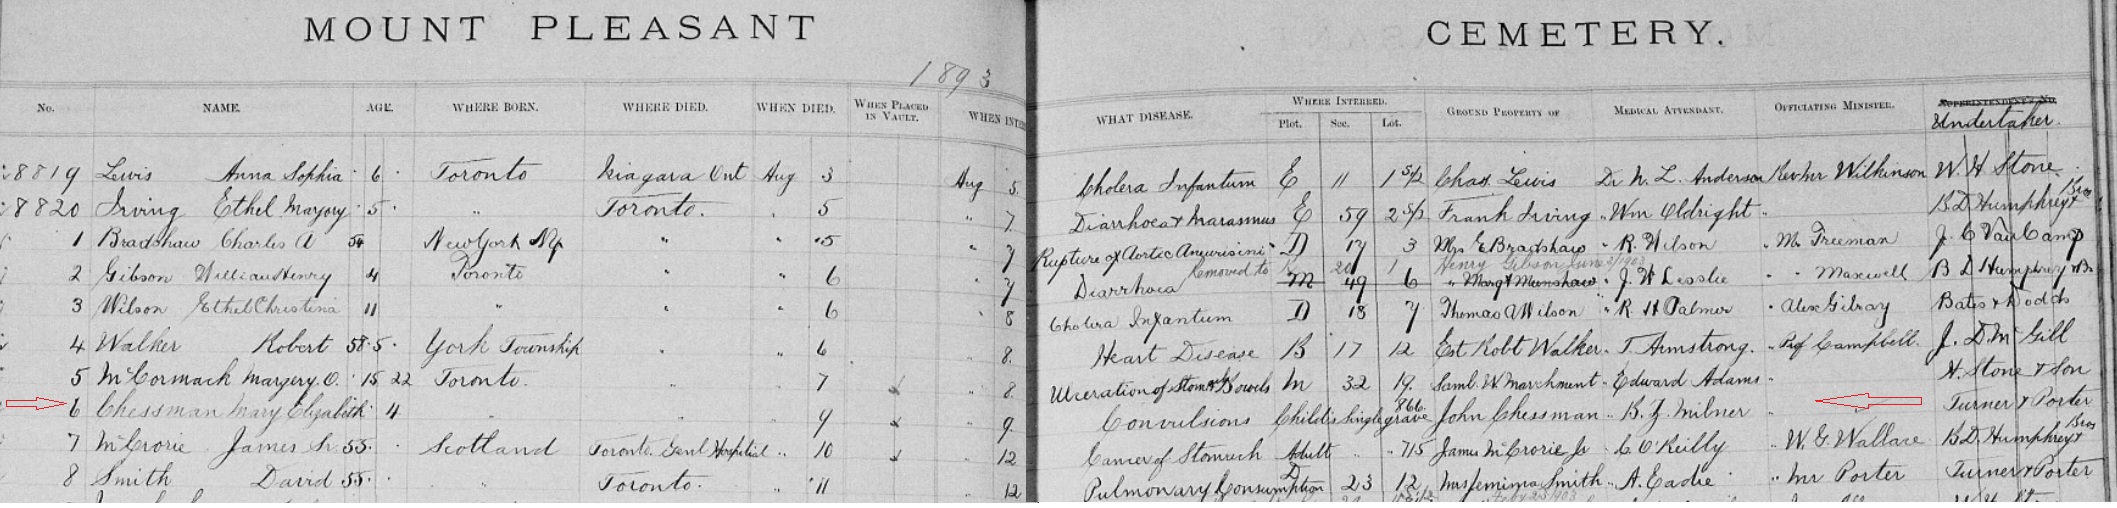 MOUNT PLEASANT CEMETERY.
1893
No. NAME. AGE. WHERE BORN. WHERE DIED. WHEN DIED. WHEN PLACED IN VAULT. WHEN INTE WHAT DISEASE. WHERE INTERRED. Plot. Sec. Lot. GROUND PROPERTY OF MEDICAL ATTENDANT. OFFICIATING MINISTER. SUPERINTENDENT'S NO.
Undertaker.
8819 Lewis Anna Sophia 6 Toronto Niagara Ont Aug 3 Aug 5. Cholera Infantum E 11 1 S½ Chas. Lewis Dr N. L. Anderson Rev Mr Wilkinson W. H. Stone
8820 Irving Ethel Marjory 5 " Toronto. " 5 " 7. Diarrhoea & Marasmus E 59 2 S½ Frank Irving " Wm Oldright " B D Humphrey & Bros
1 Bradshaw Charles A 54 New York Ny " " 5 " 7 Rupture of Aortic Aneurism D 17 3 Mrs E Bradshaw " R. Wilson " Mr Freeman J. C Van Camp
Removed to K 20 1 Henry Gibson June 2/1903
2 Gibson William Henry 4 Toronto " " 6 " 7 Diarrhoea M 49 6 " Margt Munshaw " J. W Lesslie " " Maxwell B D Humphrey & Bro
3 Wilson Ethel Christina 11 " " " 6 " 8 Cholera Infantum D 18 7 Thomas A Wilson " R. H Palmer " Alex Gilray Bates & Dodds
4 Walker Robert 58 5 York Township " " 6 " 8. Heart Disease B 17 12 Est Robt Walker " T. Armstrong. " Prof Campbell. J. D. McGill
5 McCormack Margery. O. 15 22 Toronto. " " 7 " 8. Ulceration of Stomach & Bowels M 32 19. Saml. W. Marchment " Edward Adams " H. Stone & Son
6 Chessman Mary Elizabeth 4 " " " 9 " 9. Convulsions Child's Single grave 866. John Chessman " B. Z. Milner " Turner & Porter
7 McCrorie James Sr. 55. Scotland Toronto. Genl Hospital " 10 " 12 Cancer of Stomach Adult " " 715 James McCrorie Jr " C. O'Reilly " W. G. Wallace B. D. Humphrey & Bros
8 Smith David 55. " Toronto. " 11 " 12 Pulmonary Consumption D 23 12 Mrs Jemima Smith " A. Eadie " Mr Porter Turner & Porter